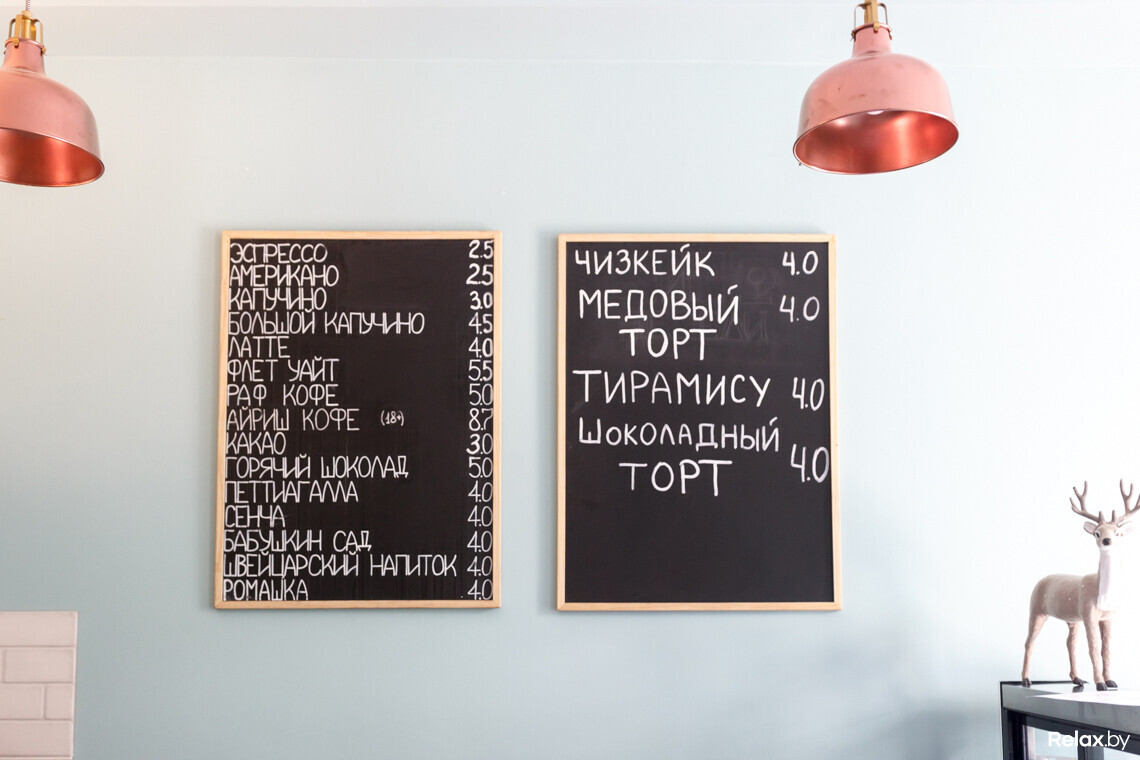 ЭСПРЕССО 2.5
АМЕРИКАНО 2.5
КАПУЧИНО 3.0
БОЛЬШОЙ КАПУЧИНО 4.5
ЛАТТЕ 4.0
ФЛЕТ УАЙТ 5.5
РАФ КОФЕ 5.0
АЙРИШ КОФЕ (18+) 8.7
КАКАО 3.0
ГОРЯЧИЙ ШОКОЛАД 5.0
ПЕТТИАГАЛЛА 4.0
СЕНЧА 4.0
БАБУШКИН САД 4.0
ШВЕЙЦАРСКИЙ НАПИТОК 4.0
РОМАШКА 4.0
ЧИЗКЕЙК 4.0
МЕДОВЫЙ 4.0
ТОРТ
ТИРАМИСУ 4.0
ШОКОЛАДНЫЙ
ТОРТ 4.0
Relax.by